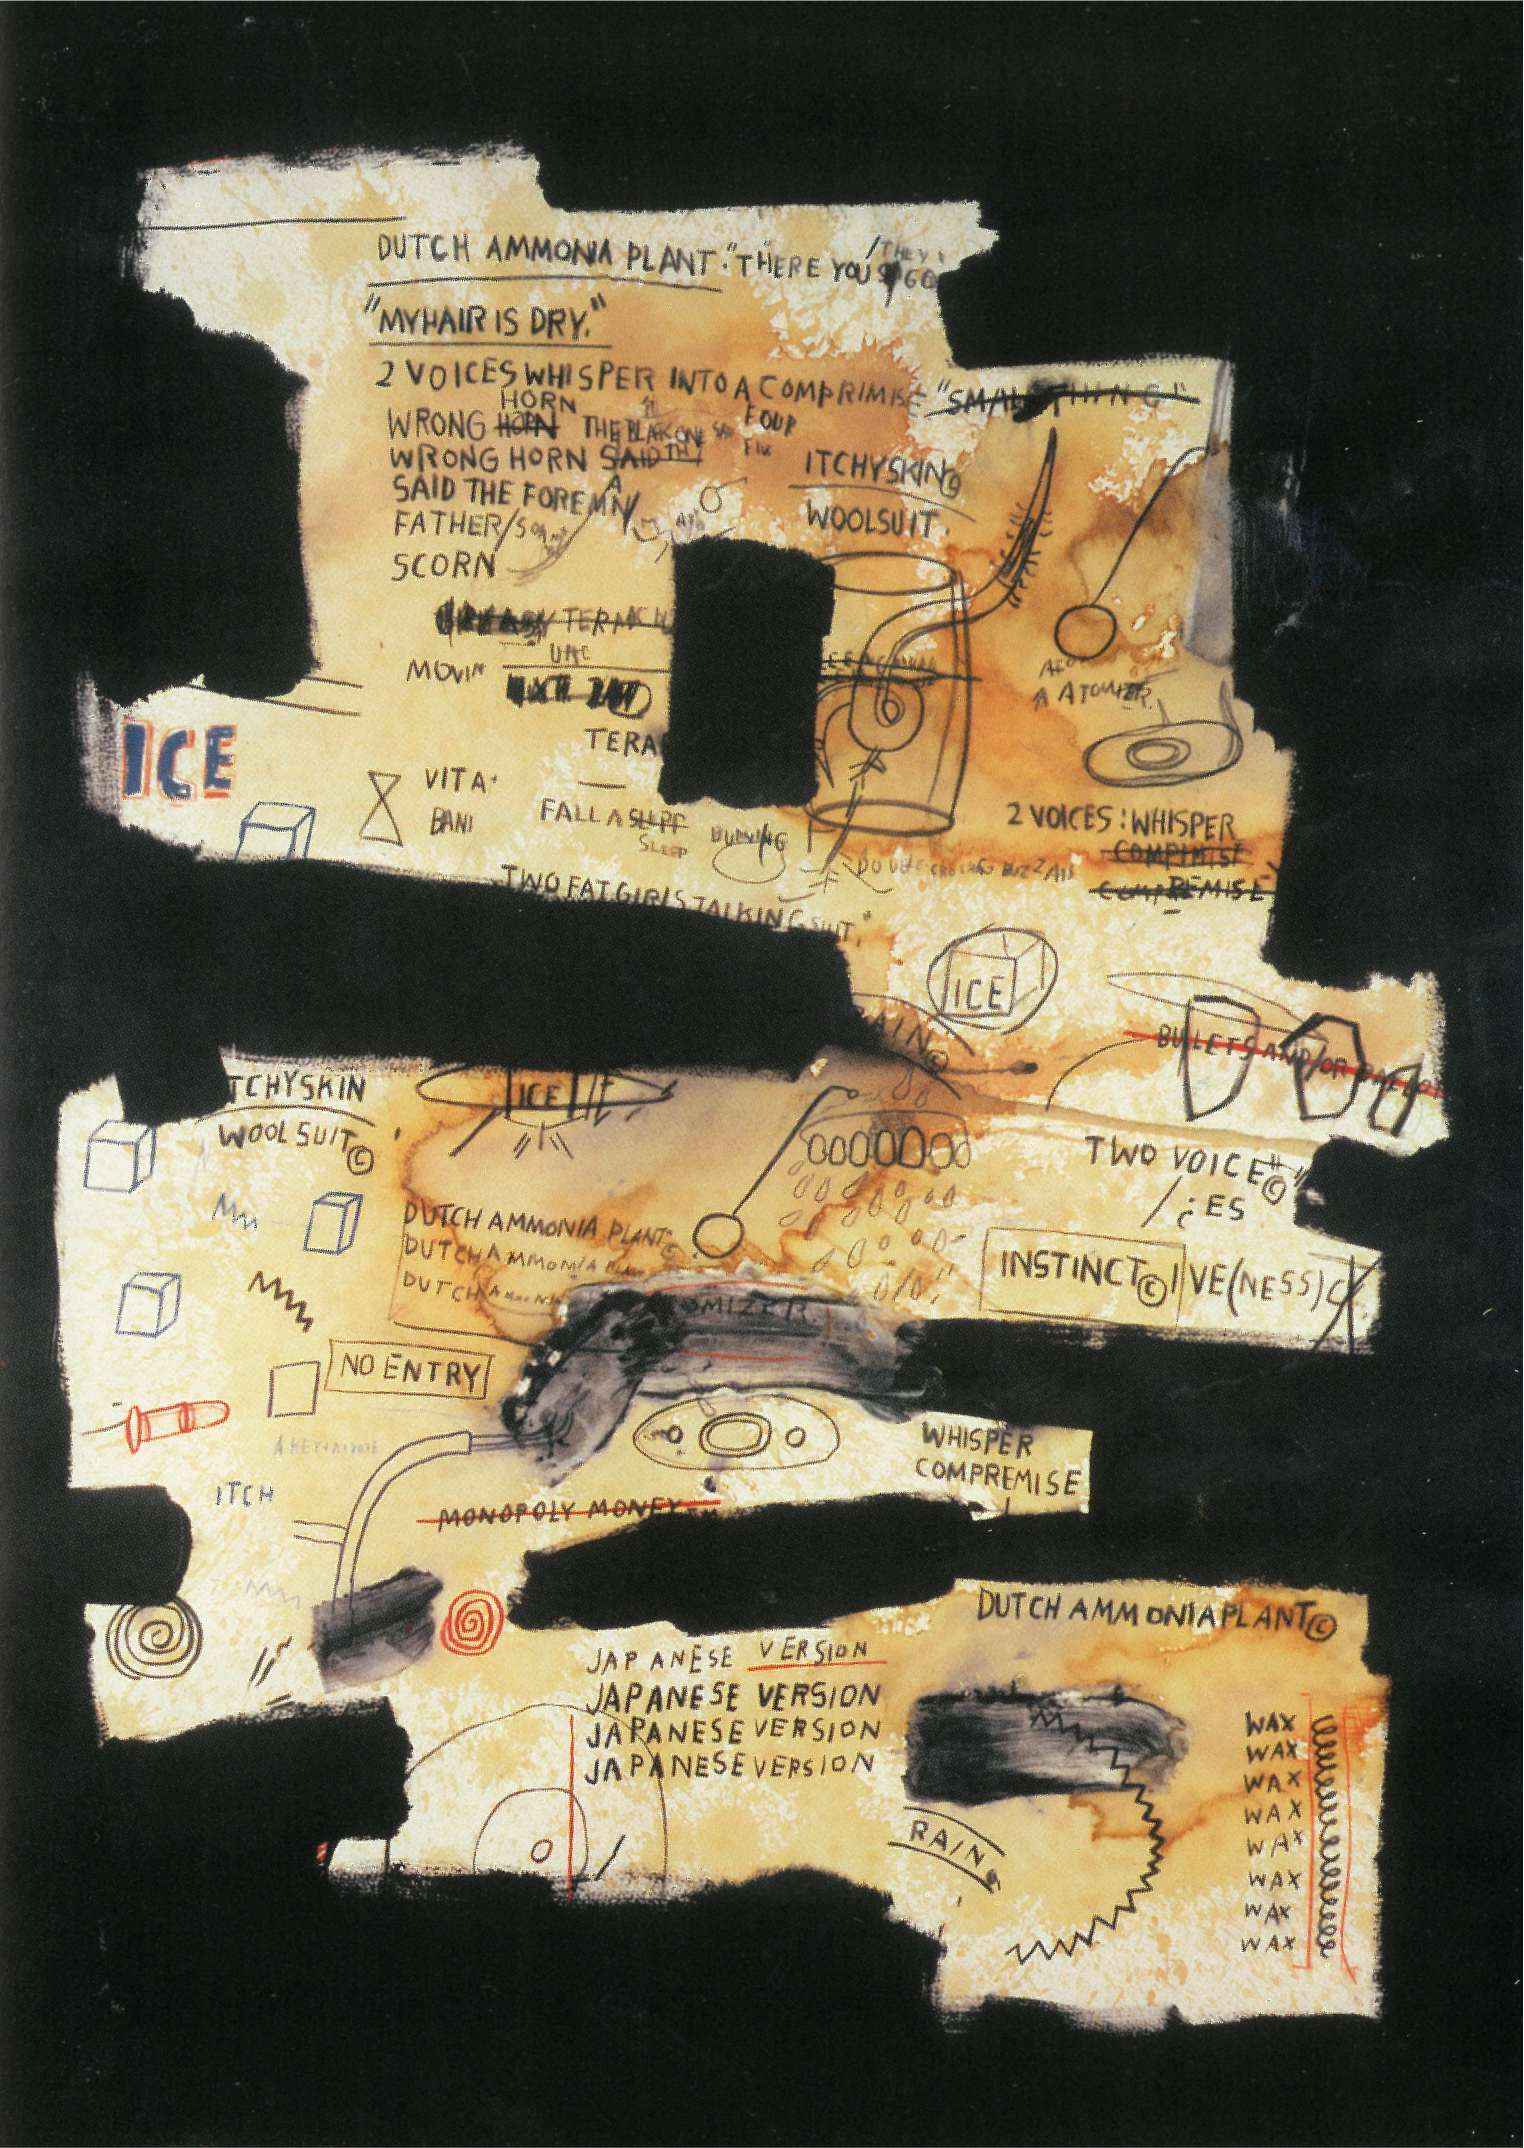 DUTCH AMMONIA PLANT: "THERE YOU GO
/THEY
"MY HAIR IS DRY."
2 VOICES WHISPER INTO A COMPRIMISE "SMALL THING"
HORN
WRONG HORN THE BLACK ONE SAID FOUR
WRONG HORN SAID THE
A
SAID THE FOREMN
FATHER/S
SCORN
ITCHYSKIN©
WOOLSUIT.
MOVIN
TERA
A ATOMIZER
ICE
VITA
BANI
FALL ASLEEP
SLEEP
BURNING
2 VOICES: WHISPER
COMPIMISE
COMPREMISE
TWO FAT GIRLS TALKING SUIT."
ICE
AIN©
BULLETS AND/OR BALLOT
TCHYSKIN
WOOLSUIT©
ICE
TWO VOICE"©
/¿ES
DUTCH AMMONIA PLANT©
DUTCH AMMONIA PLANT
DUTCH AMMONIA
INSTINCT©IVE(NESS)
OMIZER
NO ENTRY
WHISPER
COMPREMISE
ITCH
MONOPOLY MONEY™
DUTCH AMMONIA PLANT©
JAPANESE VERSION
JAPANESE VERSION
JAPANESE VERSION
JAPANESE VERSION
WAX
WAX
WAX
WAX
WAX
WAX
WAX
WAX
RAIN©